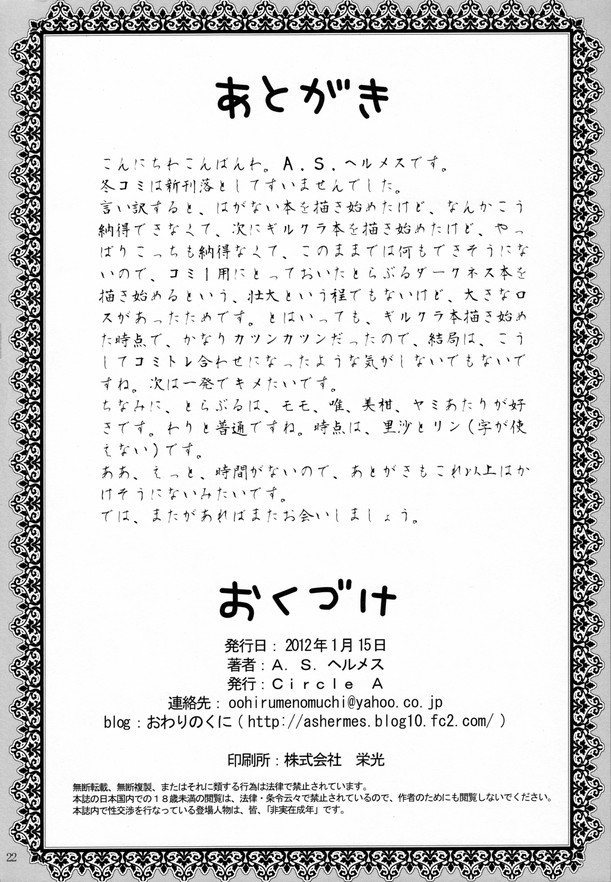 あとがき
こんにちわこんばんわ。A.S.ヘルメスです。
冬コミは新刊落としてすいませんでした。
言い訳すると、はがない本を描き始めたけど、なんかこう
納得できなくて、次にギルクラ本を描き始めたけど、やっ
ぱりこっちも納得なくて、このままでは何もできそうにな
いので、コミ1用にとっておいたとらぶるダークネス本を
描き始めるという、壮大という程でもないけど、大きなロ
スがあったためです。とはいっても、ギルクラ本描き始め
た時点で、かなりカツンカツンだったので、結局は、こう
してコミトレ合わせになったような気がしないでもないで
すね。次は一発でキメたいです。
ちなみに、とらぶるは、モモ、唯、美柑、ヤミあたりが好
きです。わりと普通ですね。時点は、里沙とリン(字が使
えない)です。
ああ、えっと、時間がないので、あとがきもこれ以上はか
けそうにないみたいです。
では、またがあればまたお会いしましょう。
おくづけ
発行日：2012年1月15日
著者：A．S．ヘルメス
発行：Circle A
連絡先：oohirumenomuchi@yahoo.co.jp
blog：おわりのくに(http://ashermes.blog10.fc2.com/)
印刷所：株式会社　栄光
無断転載、無断複製、またはそれに類する行為は法律で禁止されています。
本誌の日本国内での18歳未満の閲覧は、法律・条令云々で禁止されているので、作者のためにも閲覧しないでください。
本誌内で性交渉を行なっている登場人物は、皆、「非実在成年」です。
22